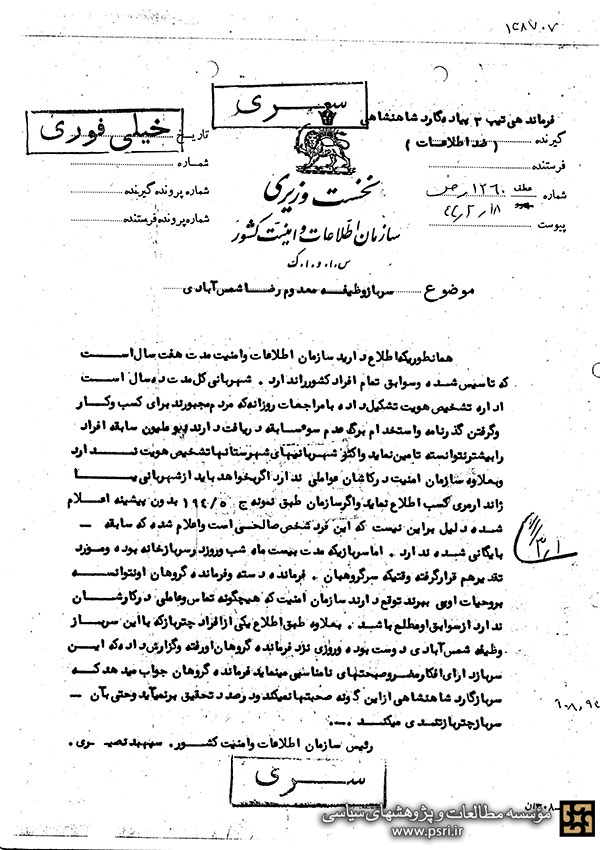 ۱۳۸۷۰۷
سری
خیلی فوری
فرماندهی تیپ ۲ پیاده گارد شاهنشاهی
گیرنده ( ضد اطلاعات )
فرستنده
شماره عطف ۱۲۶۰
پیوست
تاریخ
شماره
شماره پرونده گیرنده
شماره پرونده فرستنده
نخست وزیری
سازمان اطلاعات و امنیت کشور
س.ا.و.ا.ک
موضوع سرباز وظیفه معدوم رضا شمس آبادی
همانطوریکه اطلاع دارید سازمان اطلاعات و امنیت مدت هفت سال است
که تاسیس شده و سوابق تمام افراد کشور را ندارد . شهربانی کل مدت ده سال است
اداره تشخیص هویت تشکیل داده با مراجعات روزانه که مردم مجبورند برای کسب و کار
و گرفتن گذرنامه و استخدام برگ عدم سوء سابقه دریافت دارند دو ملیون سابقه افراد
را بیشتر نتوانسته تامین نماید و اکثر شهربانیهای شهرستانها تشخیص هویت ندارد
و بعلاوه سازمان امنیت در کاشان عواملی ندارد اگر بخواهد باید از شهربانی یا
ژاندارمری کسب اطلاع نماید و اگر سازمان طبق نمونه ج ۱۹۴/۵ بدون پیشینه اعلام
شده دلیل بر این نیست که این فرد شخص صالحی است و اعلام شده که سابقه -
بایگانی شده ندارد . اما سربازیکه مدت بیست ماه شب و روز در سربازخانه بوده و مورد
تقدیر هم قرار گرفته و قتیکه سرگروهبان . فرمانده دسته و فرمانده گروهان او نتوانسته
بروحیات او پی ببرند توقع دارند سازمان امنیت که هیچگونه تماس و عاملی در کارشان
ندارد از سوابق او مطلع باشد . بعلاوه طبق اطلاع یکی از افراد چترباز که با این سرباز
وظیفه شمس آبادی دوست بوده و روزی نزد فرمانده گروهان او رفته و گزارش داده که این
سرباز دارای افکار مضر و صحبتهای نامناسبی مینماید فرمانده گروهان جواب میدهد که
سرباز گارد شاهنشاهی از این گونه صحبتها نمیکند و در صدد تحقیق برنمیآید و حتی بآن -
سرباز چترباز تندی میکند . -.
رئیس سازمان اطلاعات و امنیت کشور. سپهبد نصیری.
سری
۳۰۸-ن
موسسه مطالعات و پژوهشهای سیاسی
www.psri.ir